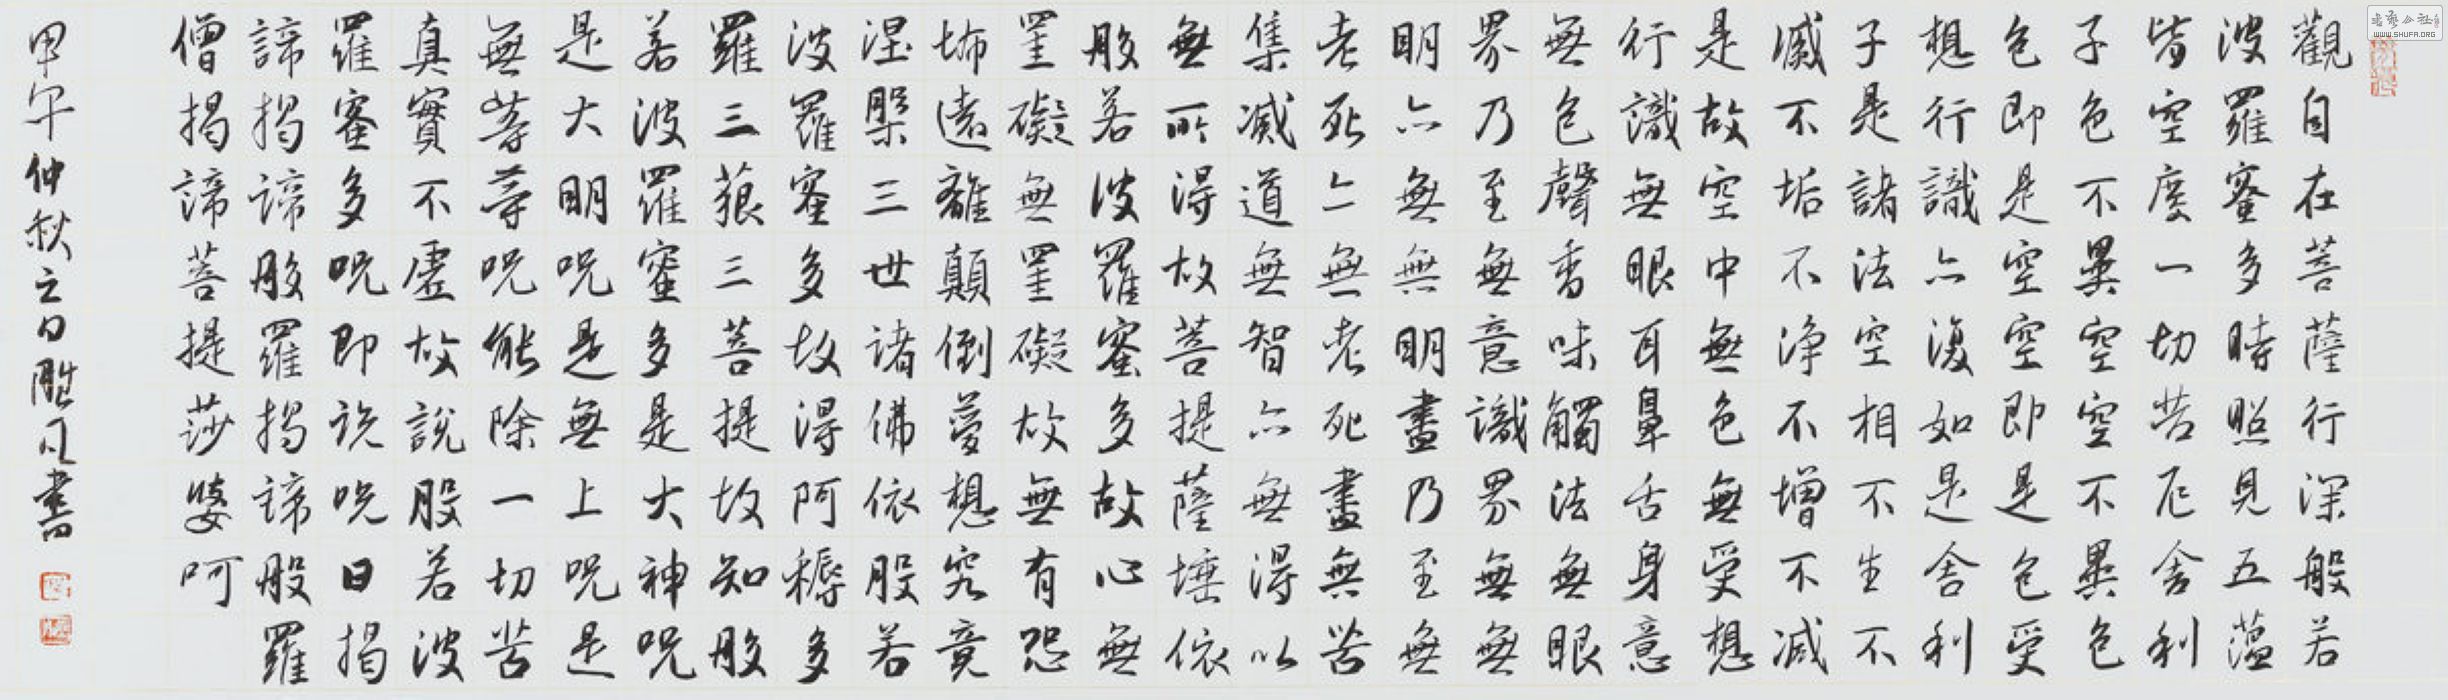 觀自在菩薩行深般若
波羅蜜多時照見五蘊
皆空度一切苦厄舍利
子色不異空空不異色
色即是空空即是色受
想行識亦復如是舍利
子是諸法空相不生不
滅不垢不淨不增不減
是故空中無色無受想
行識無眼耳鼻舌身意
無色聲香味觸法無眼
界乃至無意識界無無
明亦無無明盡乃至無
老死亦無老死盡無苦
集滅道無智亦無得以
無所得故菩提薩埵依
般若波羅蜜多故心無
罣礙無罣礙故無有恐
怖遠離顛倒夢想究竟
涅槃三世諸佛依般若
波羅蜜多故得阿耨多
羅三藐三菩提故知般
若波羅蜜多是大神呪
是大明呪是無上呪是
無等等呪能除一切苦
真實不虛故說般若波
羅蜜多呪即說呪曰揭
諦揭諦般羅揭諦般羅
僧揭諦菩提莎婆呵
甲午仲秋之日勝凡書
书艺公社
WWW.SHUFA.ORG